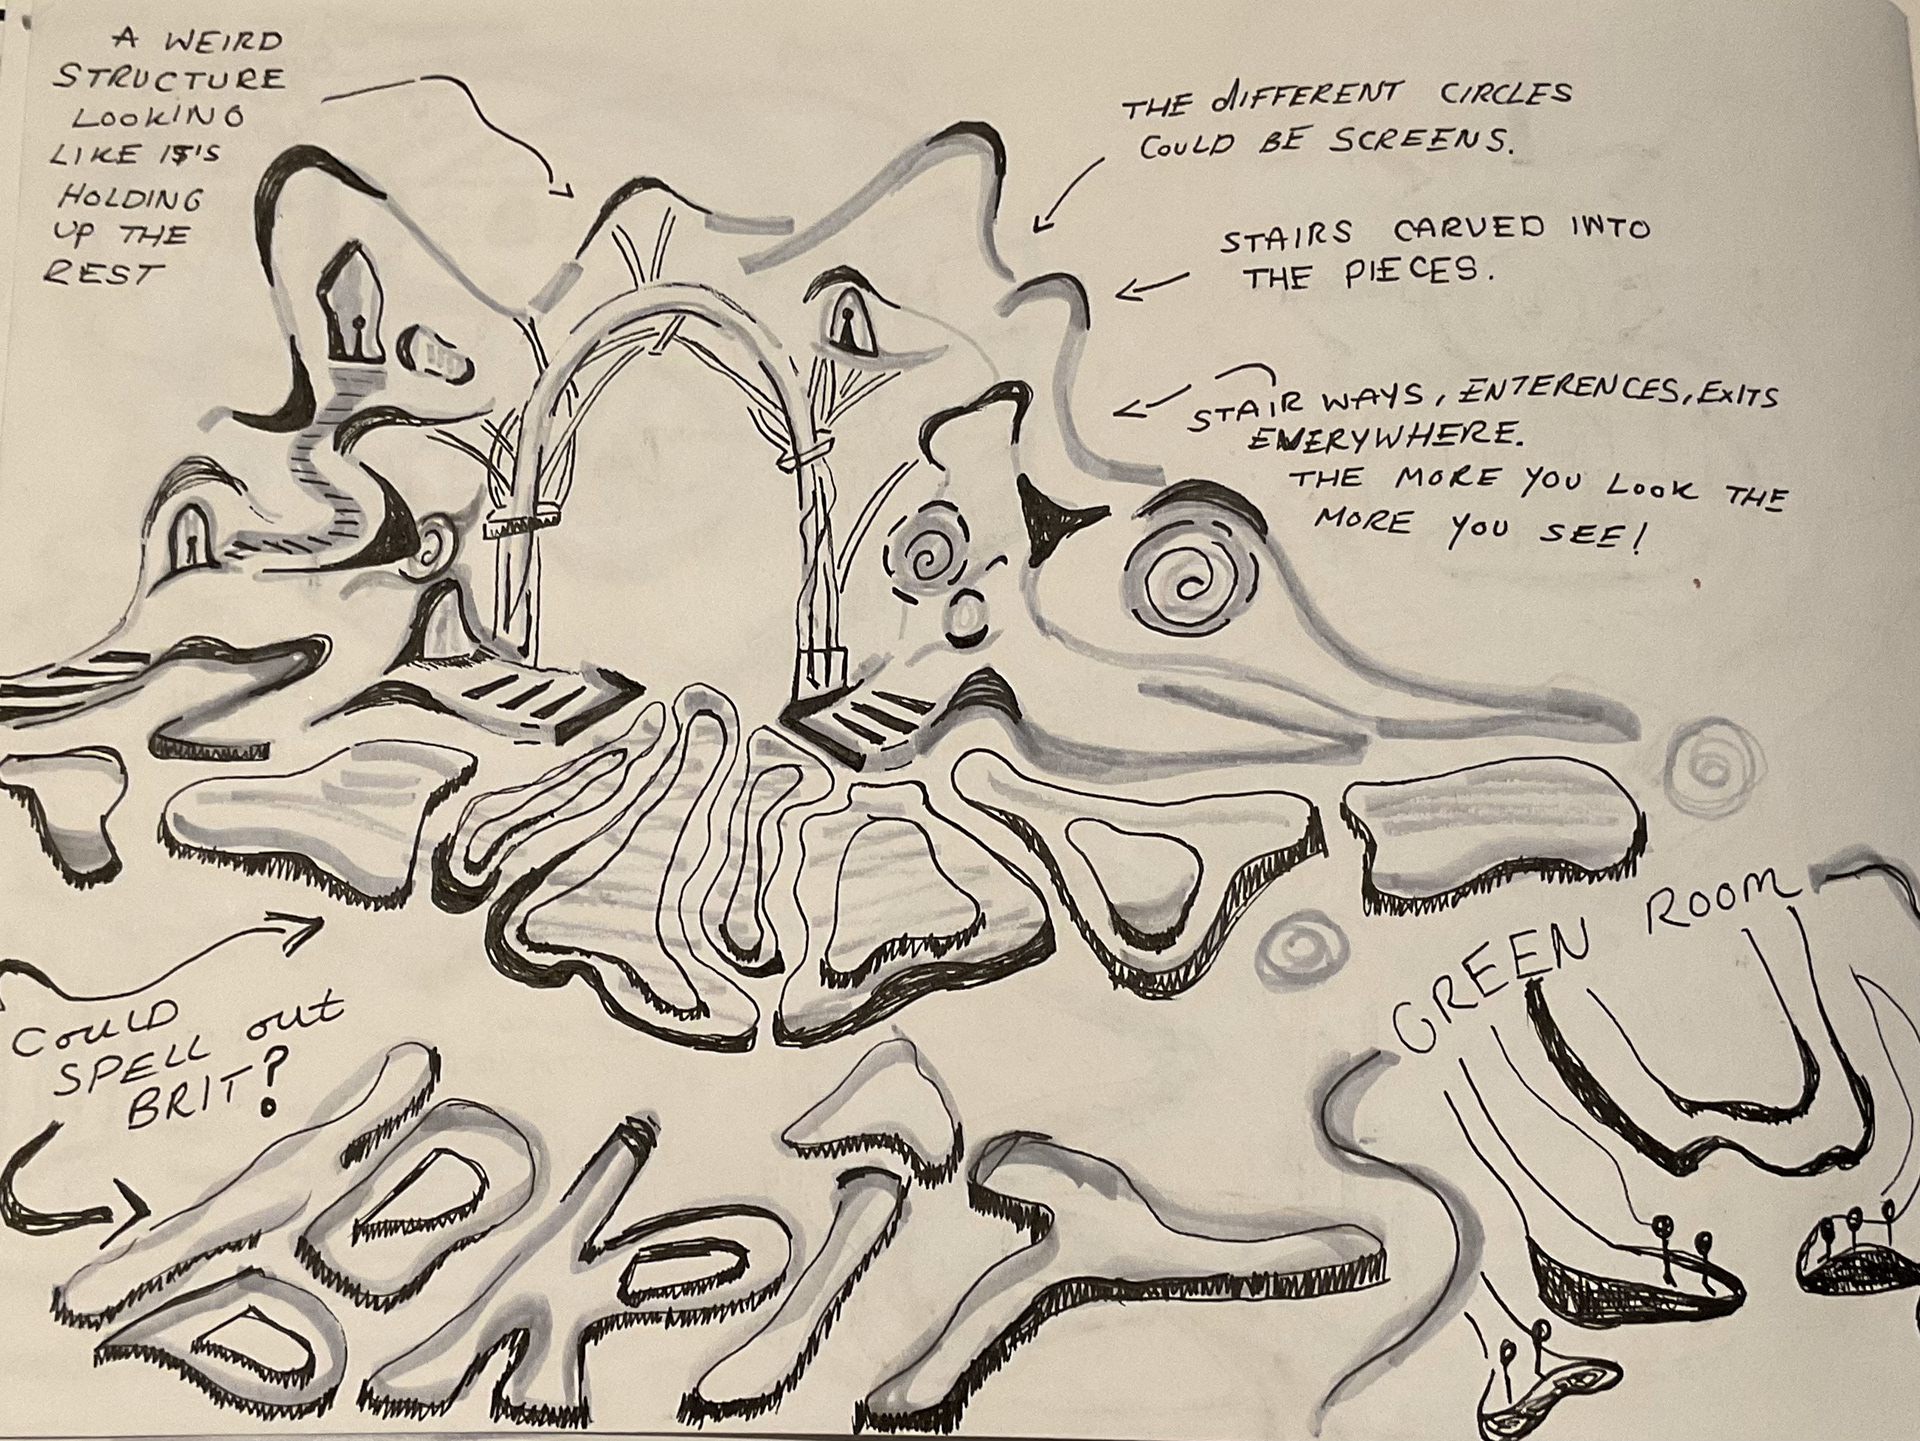 A WEIRD
STRUCTURE
LOOKING
LIKE IT'S
HOLDING
UP THE
REST
THE dIFFERENT CIRCLES
COULD BE SCREENS.
STAIRS CARVED INTO
THE PIECES.
STAIR WAYS, ENTERENCES, EXITS
EVERYWHERE.
THE MORE YOU LOOK THE
MORE YOU SEE!
GREEN ROOM
COULD
SPELL OUT
BRIT?